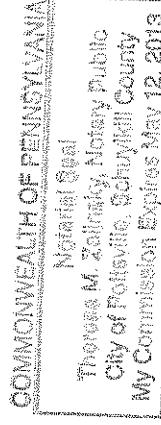 COMMONWEALTH OF PENNSYLVANIA
Notarial Seal
Theresa M. Zelinsky, Notary Public
City of Pottsville, Schuylkill County
My Commission Expires Nov. 12, 2013